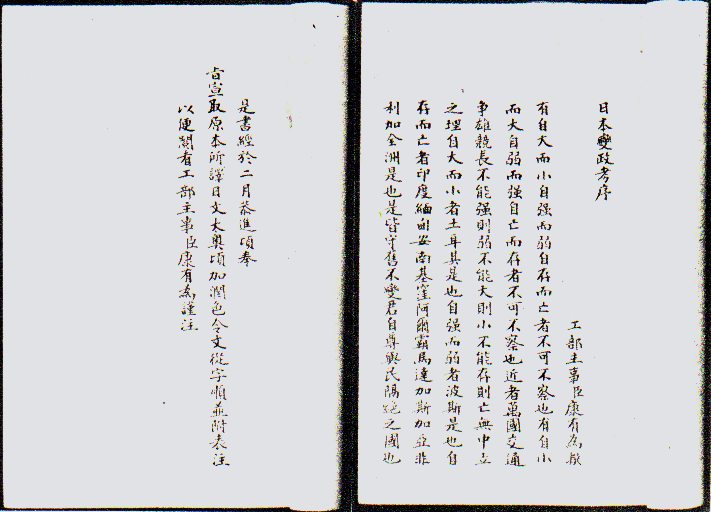 日本變政考序
工部主事臣康有為
有自大而小自强而弱自存而亡者不可不察也有自小
而大自弱而强自亡而存者不可不察也近者萬國交通
争雄競長不能强則弱不能大則小不能存則亡無中立
之理自大而小者土耳其是也自强而弱者波斯是也自
存而亡者印度緬甸安南基窪阿爾霸馬達加斯加並非
利加全洲是也是皆守舊不變君自尊與民隔絕之國也
是書經於二月恭進頃奉
旨宣取原本所譯日文大奧頃加潤色令文從字順並附表注
以便閱看工部主事臣康有為謹注